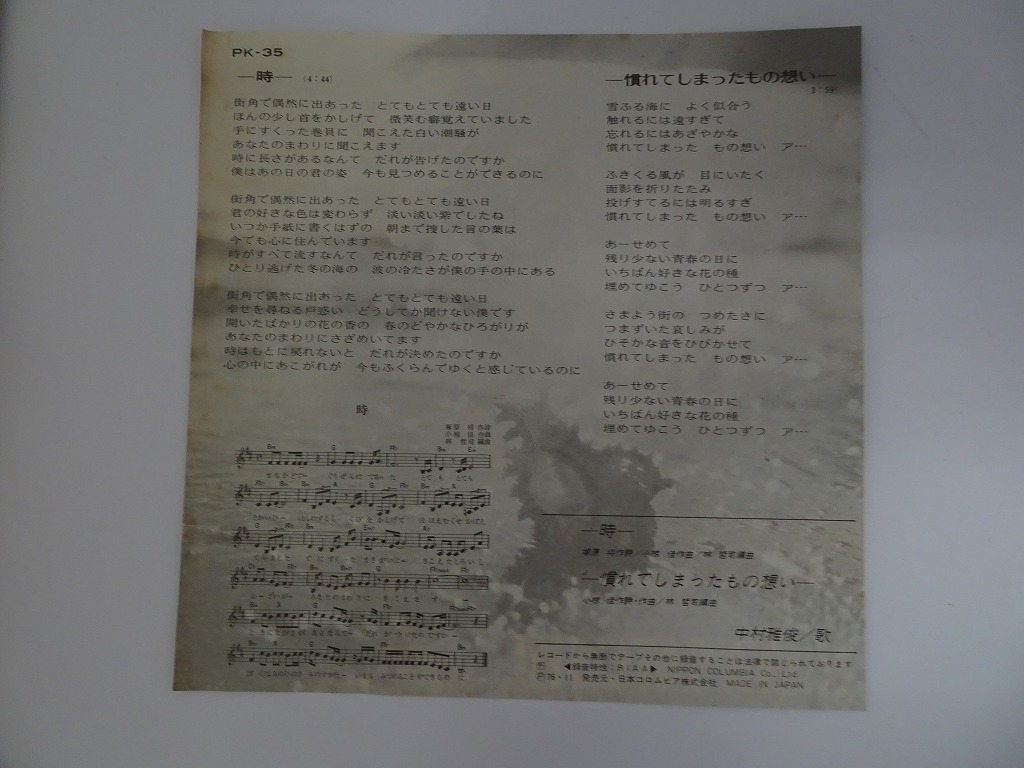 PK-35
—時— (4:44)
街角で偶然に出あった　とてもとても遠い日
ほんの少し首をかしげて　微笑む癖覚えていました
手にすくった巻貝に　聞こえた白い潮騒が
あなたのまわりに聞こえます
時に長さがあるなんて　だれが告げたのですか
僕はあの日の君の姿　今も見つめることができるのに
街角で偶然に出あった　とてもとても遠い日
君の好きな色は変わらず　淡い淡い紫でしたね
いつか手紙に書くはずの　朝まで捜した言の葉は
今でも心に住んでいます
時がすべて流すなんて　だれが言ったのですか
ひとり逃げた冬の海の　波の冷たさが僕の手の中にある
街角で偶然に出あった　とてもとても遠い日
幸せを尋ねる戸惑い　どうしてか聞けない僕です
開いたばかりの花の香の　春のどやかなひろがりが
あなたのまわりにさざめいてます
時はもとに戻れないと　だれが決めたのですか
心の中にあこがれが　今もふくらんでゆくと感じているのに
—慣れてしまったもの想い—
(3:59)
雪ふる海に　よく似合う
触れるには遠すぎて
忘れるにはあざやかな
慣れてしまった　もの想い　ア…
ふきくる風が　目にいたく
面影を折りたたみ
投げすてるには明るすぎ
慣れてしまった　もの想い　ア…
あーせめて
残り少ない青春の日に
いちばん好きな花の種
埋めてゆこう　ひとつずつ　ア…
さまよう街の　つめたさに
つまずいた哀しみが
ひそかな音をひびかせて
慣れてしまった　もの想い　ア…
あーせめて
残り少ない青春の日に
いちばん好きな花の種
埋めてゆこう　ひとつずつ　ア…
時
—時—
小椋 佳作曲／林 哲司編曲
—慣れてしまったもの想い—
小椋 佳作詩・作曲／林 哲司編曲
中村雅俊／歌
レコードから無断でテープその他に録音することは法律で禁じられております
◀録音特性：RIAA▶　NIPPON COLUMBIA Co., Ltd.
Ⓟ'76・11　発売元・日本コロムビア株式会社　MADE IN JAPAN